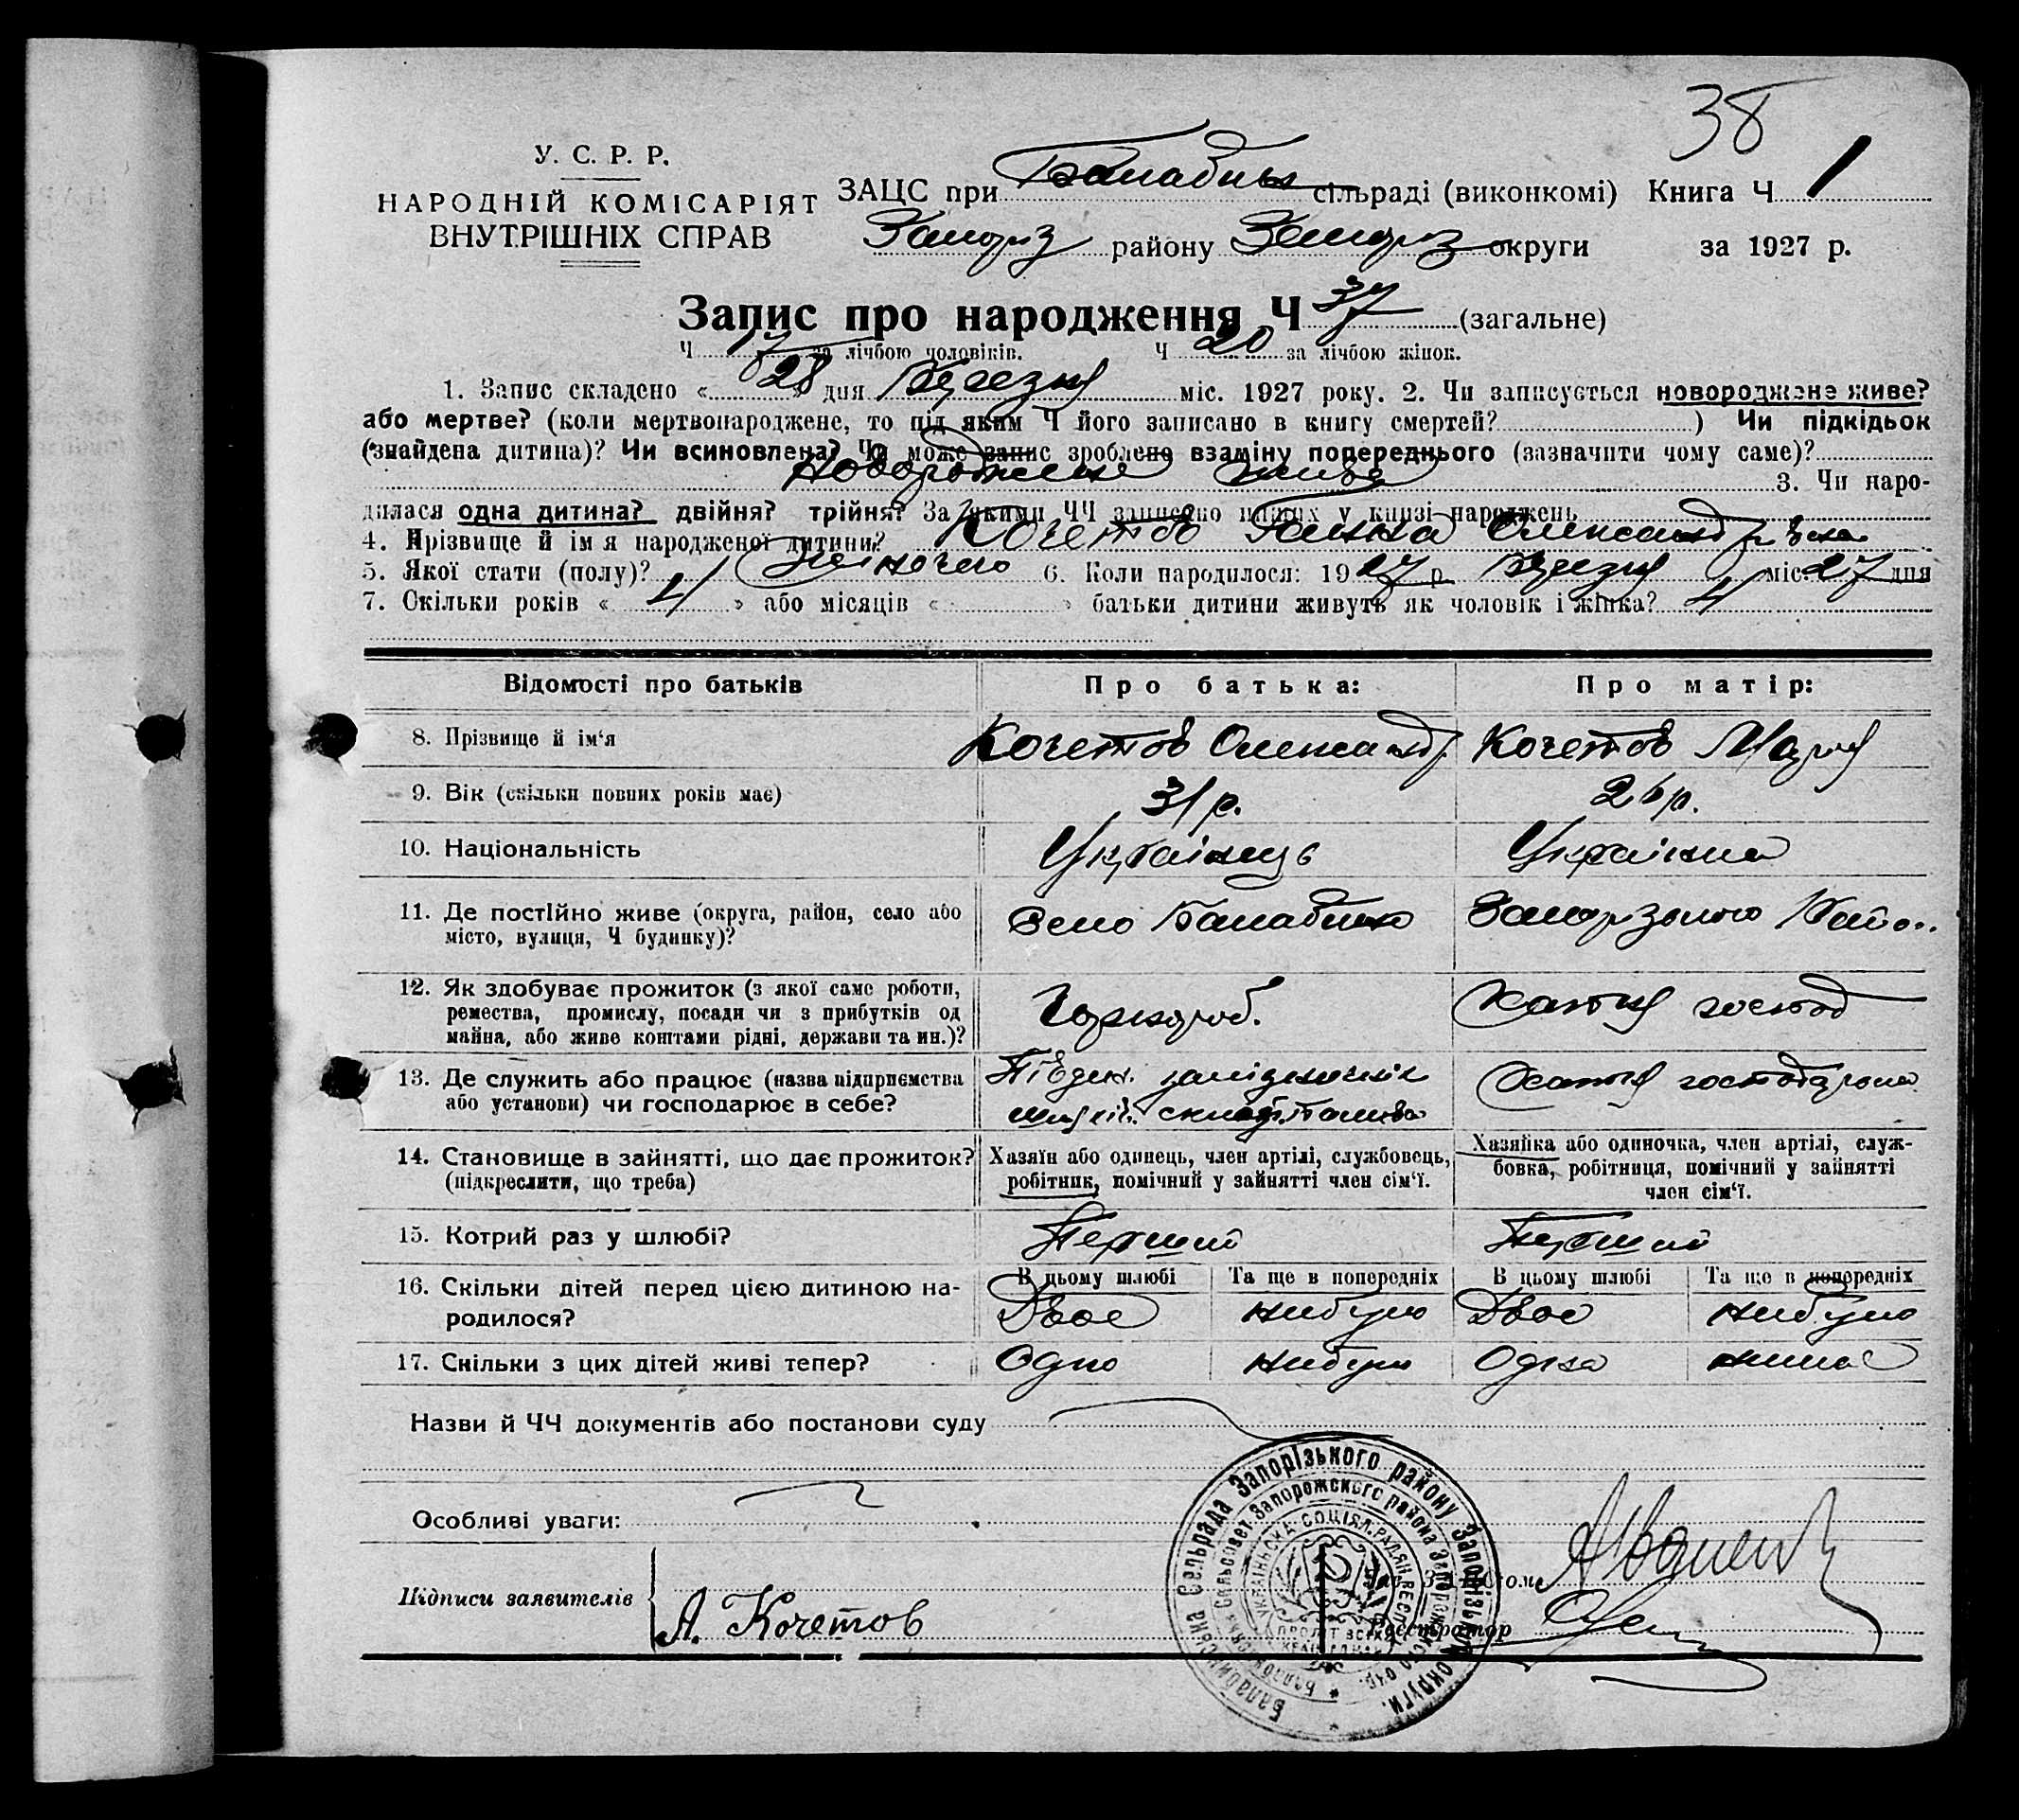 38
У. С. Р. Р.
НАРОДНІЙ КОМІСАРІЯТ
ВНУТРІШНІХ СПРАВ
ЗАЦС при Балабин сільраді (виконкомі) Книга Ч 1
Запоріз району Запоріз округи за 1927 р.
Запис про народження Ч 37 (загальне)
Ч 17 за лічбою чоловіків. Ч 20 за лічбою жінок.
1. Запис складено « 28 » дня Березня міс. 1927 року. 2. Чи записується новороджене живе?
або мертве? (коли мертвонароджене, то під яким Ч його записано в книгу смертей? ) Чи підкідьок
(знайдена дитина)? Чи всиновлена? Чи може запис зроблено взаміну попереднього (зазначити чому саме)?
новороджене живе 3. Чи наро-
дилася одна дитина? двійня? трійня? За якими ЧЧ записано инших у книзі народжень
4. Прізвище й ім'я народженої дитини? Кочетов Ганна Олександрівна
5. Якої стати (полу)? Жіночего 6. Коли народилося: 1927 р. Березня міс. 27 дня
7. Скільки років « 4 » або місяців « » батьки дитини живуть як чоловік і жінка? 4
Відомості про батьків Про батька: Про матір:
8. Прізвище й ім'я Кочетов Олександр Кочетов Марія
9. Вік (скільки повних років має) 31 р. 26 р.
10. Національність Українець Українка
11. Де постійно живе (округа, район, село або Село Балабино Запорізького Райо..
місто, вулиця, Ч будинку)?
12. Як здобуває прожиток (з якої саме роботи, Чорнороб. Хатня господ
ремества, промислу, посади чи з прибутків од
майна, або живе коштами рідні, держави та ин.)?
13. Де служить або працює (назва підприємства Південн. залізничних Хатня господарона
або установи) чи господарює в себе?
14. Становище в зайнятті, що дає прожиток? Хазяїн або одинець, член артілі, службовець, Хазяйка або одиночка, член артілі, служ-
(підкреслити, що треба) робітник, помічний у зайнятті член сім'ї. бовка, робітниця, помічний у зайнятті
член сім'ї.
15. Котрий раз у шлюбі? Перший Перший
16. Скільки дітей перед цією дитиною на- В цьому шлюбі Та ще в попередніх В цьому шлюбі Та ще в попередніх
родилося? Двоє небуло Двое небуло
17. Скільки з цих дітей живі тепер? Одно небуло Одна нима
Назви й ЧЧ документів або постанови суду
Особливі уваги:
Підписи заявителів А. Кочетов
Реєстратор
Балабинська Сельрада Запорізького району Запорізької округи.
Балабиновск. Сельсовет Запорожского района Запорожского окр.
УКРАЇНСЬКА СОЦІЯЛ. РАДЯН. РЕСП.